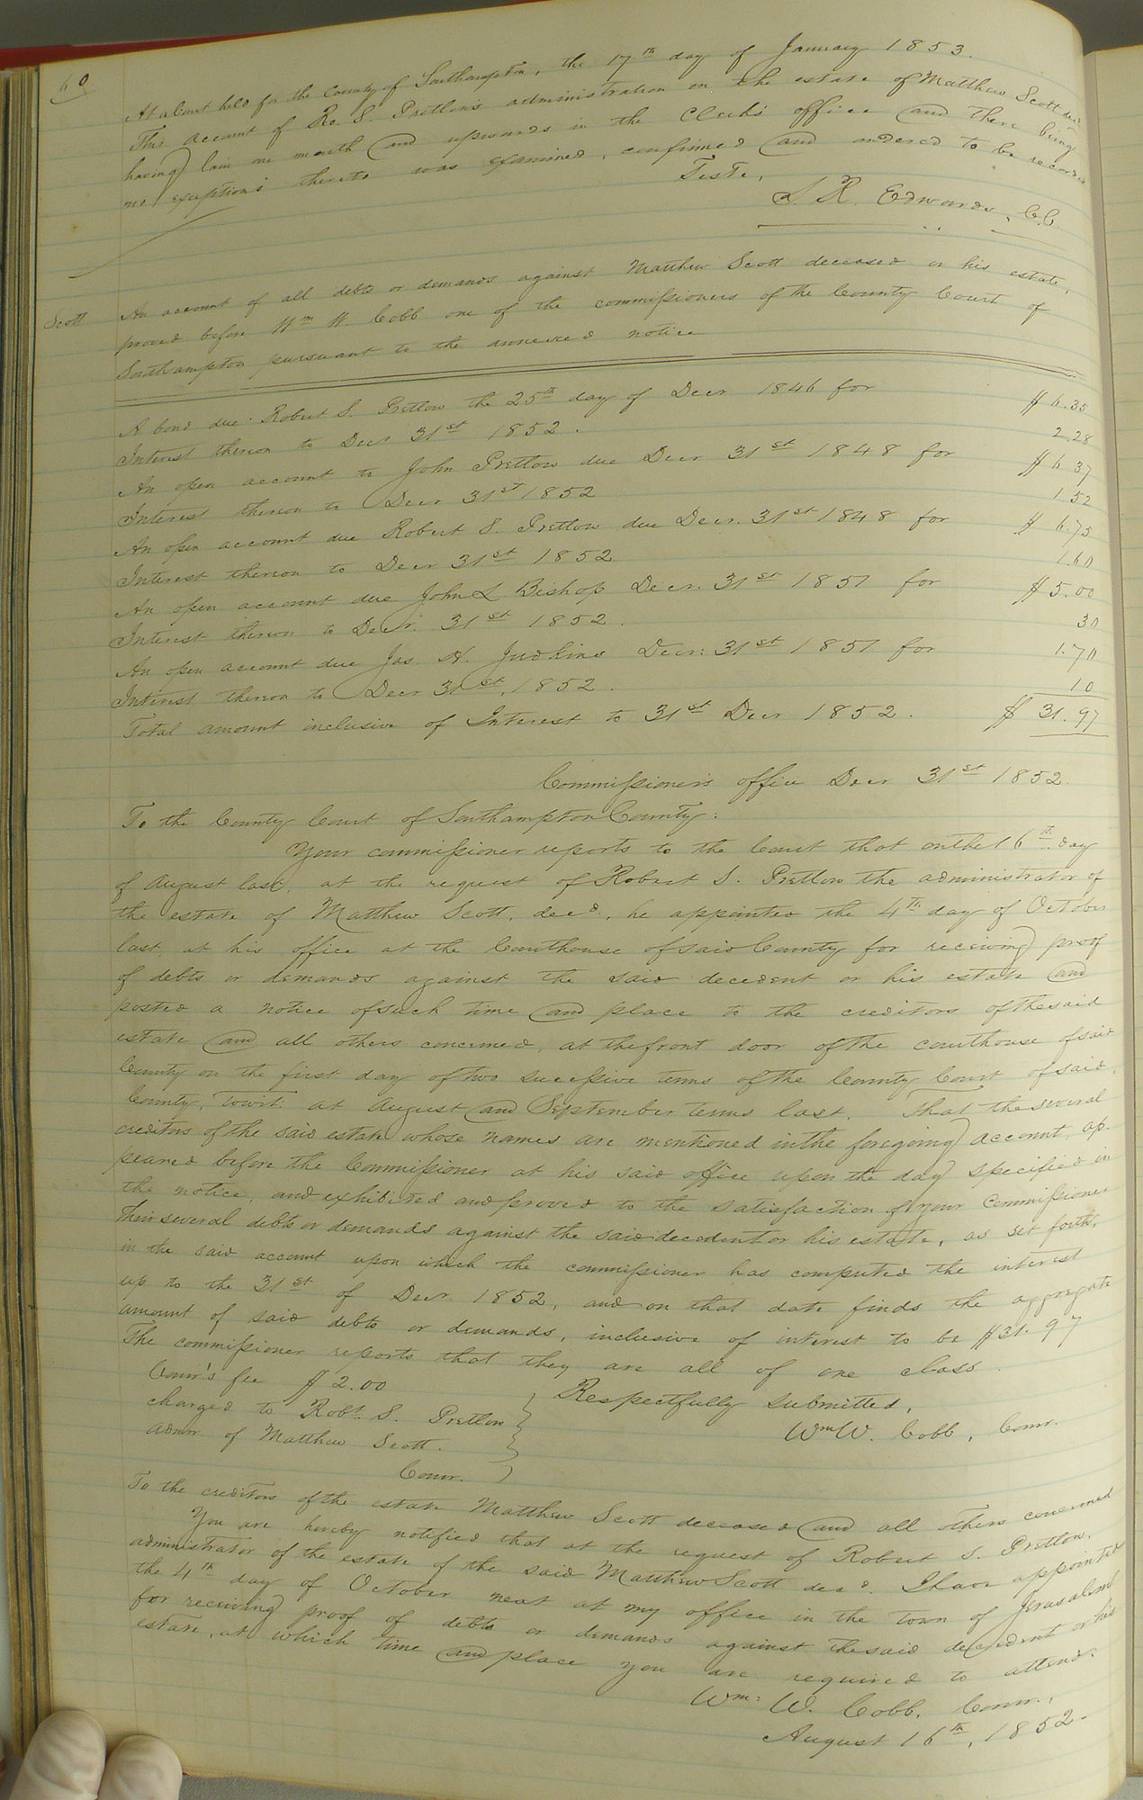 60
At a Court held for the County of Southampton, the 17th day of January 1853.
This account of Ro. S. Pretlow's administration on the estate of Matthew Scott decd
having lain one month and upwards in the Clerk's office and there being
no exceptions thereto was examined, confirmed and ordered to be recorded
Teste,
L. R. Edwards, C.C.
Scott
An account of all debts or demands against Matthew Scott deceased or his estate,
proved before Wm W Cobb one of the commissioners of the County Court of
Southampton pursuant to the annexed notice
A bond due Robert S. Pretlow the 25th day of Decr 1846 for $6.35
Interest thereon to Decr 31st 1852. 2.28
An open account to John Pretlow due Decr 31st 1848 for $6.37
Interest thereon to Decr 31st 1852 1.52
An open account due Robert S. Pretlow due Decr. 31st 1848 for $6.75
Interest thereon to Decr 31st 1852 1.60
An open account due John L Bishop Decr. 31st 1851 for $5.00
Interest thereon to Decr. 31st 1852. 30
An open account due Jas. H. Judkins Decr: 31st 1851 for 1.70
Interest thereon to Decr 31st, 1852. 10
Total amount inclusive of Interest to 31st Decr 1852. $31.97
Commissioner's office Decr 31st 1852
To the County Court of Southampton County:
Your commissioner reports to the Court that on the 16th day
of August last, at the request of Robert S. Pretlow the administrator of
the estate of Matthew Scott, decd, he appointed the 4th day of October
last at his office at the Courthouse of said County for receiving proof
of debts or demands against the said decedent or his estate and
posted a notice of such time and place to the creditors of the said
estate and all others concerned, at the front door of the courthouse of said
County on the first day of two successive terms of the County Court of said
County, towit: at August and September terms last. That the several
creditors of the said estate whose names are mentioned in the foregoing account, ap-
peared before the Commissioner at his said office upon the day specified in
the notice, and exhibited and proved to the satisfaction of your Commissioner
their several debts or demands against the said decedent or his estate, as set forth,
in the said account upon which the commissioner has computed the interest
up to the 31st of Decr 1852, and on that date finds the aggregate
amount of said debts or demands, inclusive of interest to be $31.97
The commissioner reports that they are all of one class.
Comr's fee $2.00
charged to Robt. S. Pretlow
admr of Matthew Scott.
Comr.
Respectfully submitted,
Wm W. Cobb, Comr.
To the creditors of the estate Matthew Scott deceased and all others concerned
You are hereby notified that at the request of Robert S. Pretlow,
administrator of the estate of the said Matthew Scott decd. I have appointed
the 4th day of October next at my office in the town of Jerusalem
for receiving proof of debts or demands against the said decedent or his
estate, at which time and place you are required to attend.
Wm: W. Cobb, Comr.,
August 16th, 1852.